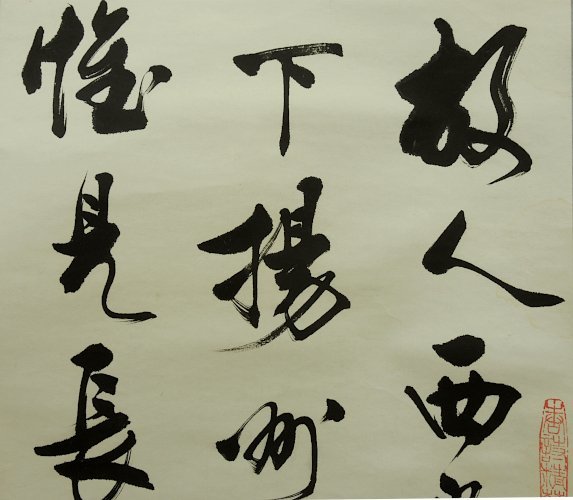 故人西
下揚州
惟見長